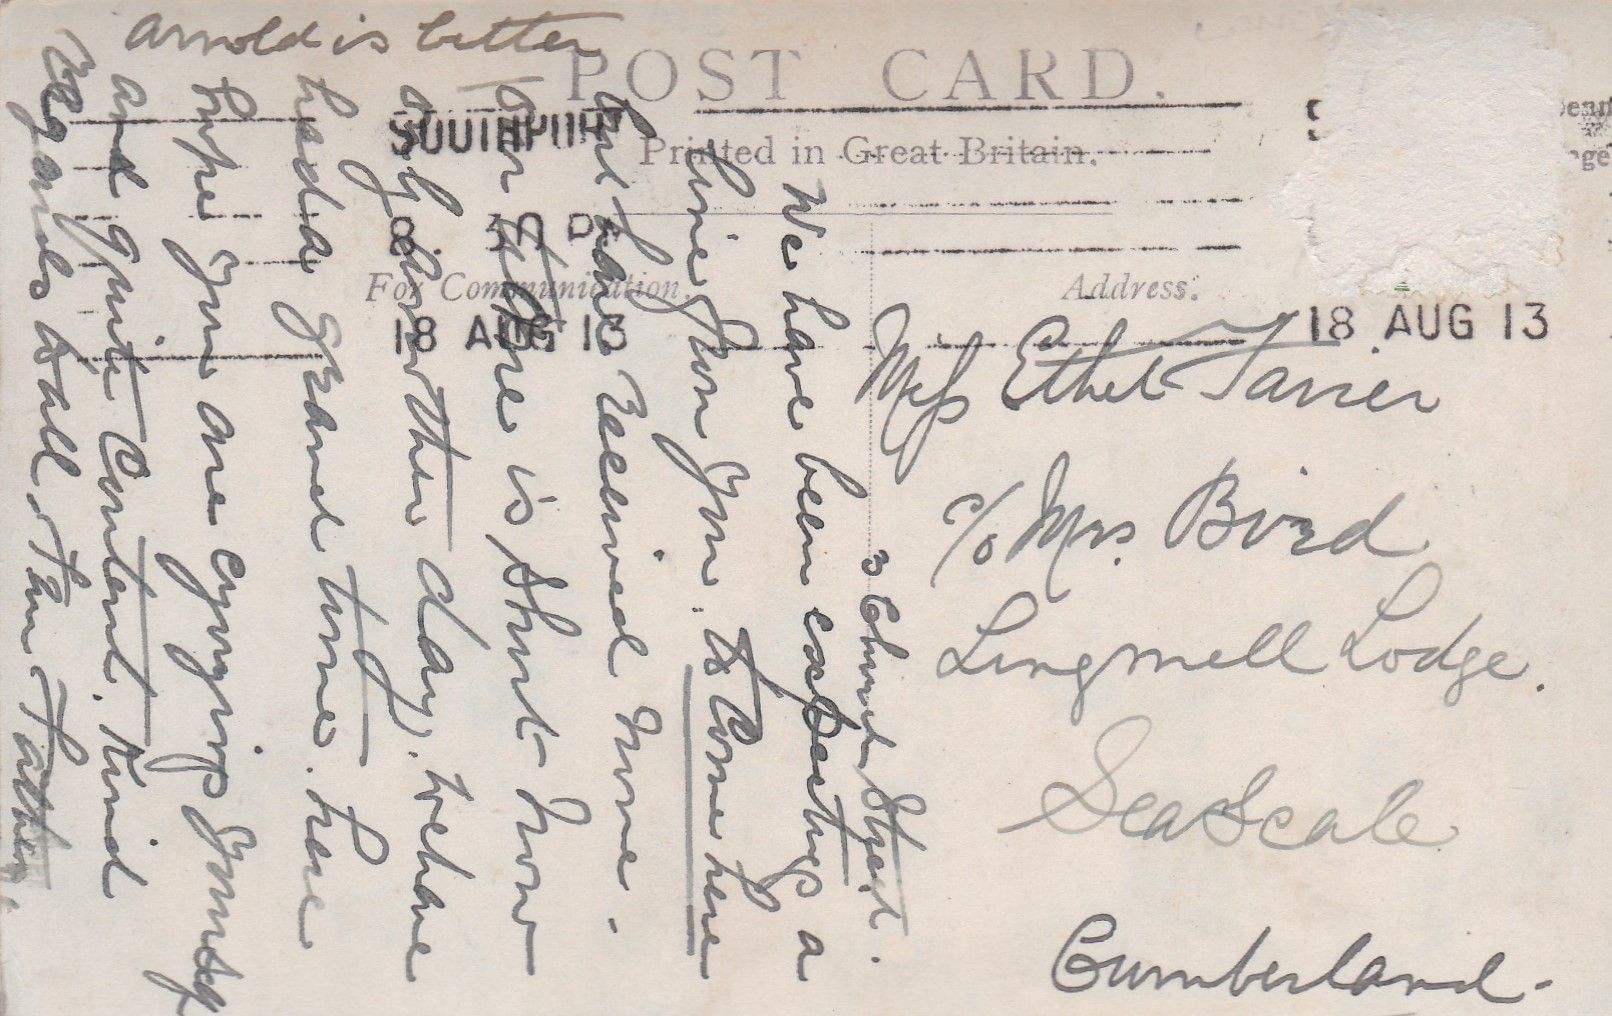 POST CARD.
Printed in Great Britain.
For Communication.
Address.
SOUTHPORT
8 30 P
18 AUG 13
18 AUG 13
Miss Ethel Tarrer
c/o Mrs. Bird
Lingmell Lodge.
Seascale
Cumberland.
3 Church Street.
We have been expecting a
line from you. to Come here
but have received none.
our time is short now
only another day, we have
had a grand time. here
hope you are enjoying yourself
and quite Content. Kind
regards to all from Father
Arnold is better